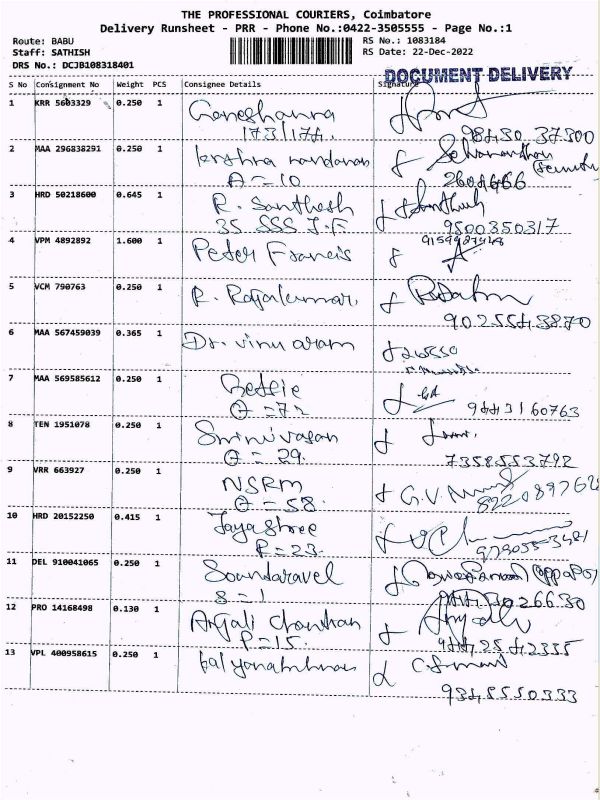 THE PROFESSIONAL COURIERS, Coimbatore
Delivery Runsheet - PRR - Phone No.:0422-3505555 - Page No.:1
Route: BABU
Staff: SATHISH
DRS No.: DCJB108318401
RS No.: 1083184
RS Date: 22-Dec-2022
DOCUMENT DELIVERY
S No Consignment No Weight PCS Consignee Details Signature
1 KRR 5603329 0.250 1 Ganeshanra
173/174. 98430 37300
2 MAA 296838291 0.250 1 krishna nandanan
A = 10 2604666
3 HRD 50218600 0.645 1 R. Santhosh
35 SSS I.F 9500350317
4 VPM 4892892 1.600 1 Peter Francis
5 VCM 790763 0.250 1 R. Rajakumar.
9025543870
6 MAA 567459039 0.365 1 Dr. vinu aram
7 MAA 569585612 0.250 1 Bessie
9443160763
8 TEN 1951078 0.250 1 Srinivasan
O = 29. 7358553792
9 VRR 663927 0.250 1 NSRM G.V.
O = 58. 8220897628
10 HRD 20152250 0.415 1 Jayashree
P = 23.
11 DEL 910041065 0.250 1 Soundaravel
S = 1
12 PRO 14168498 0.130 1 Anjali Chouhan Anjali
P = 15. 9442542355
13 VPL 400958615 0.250 1
9348550333